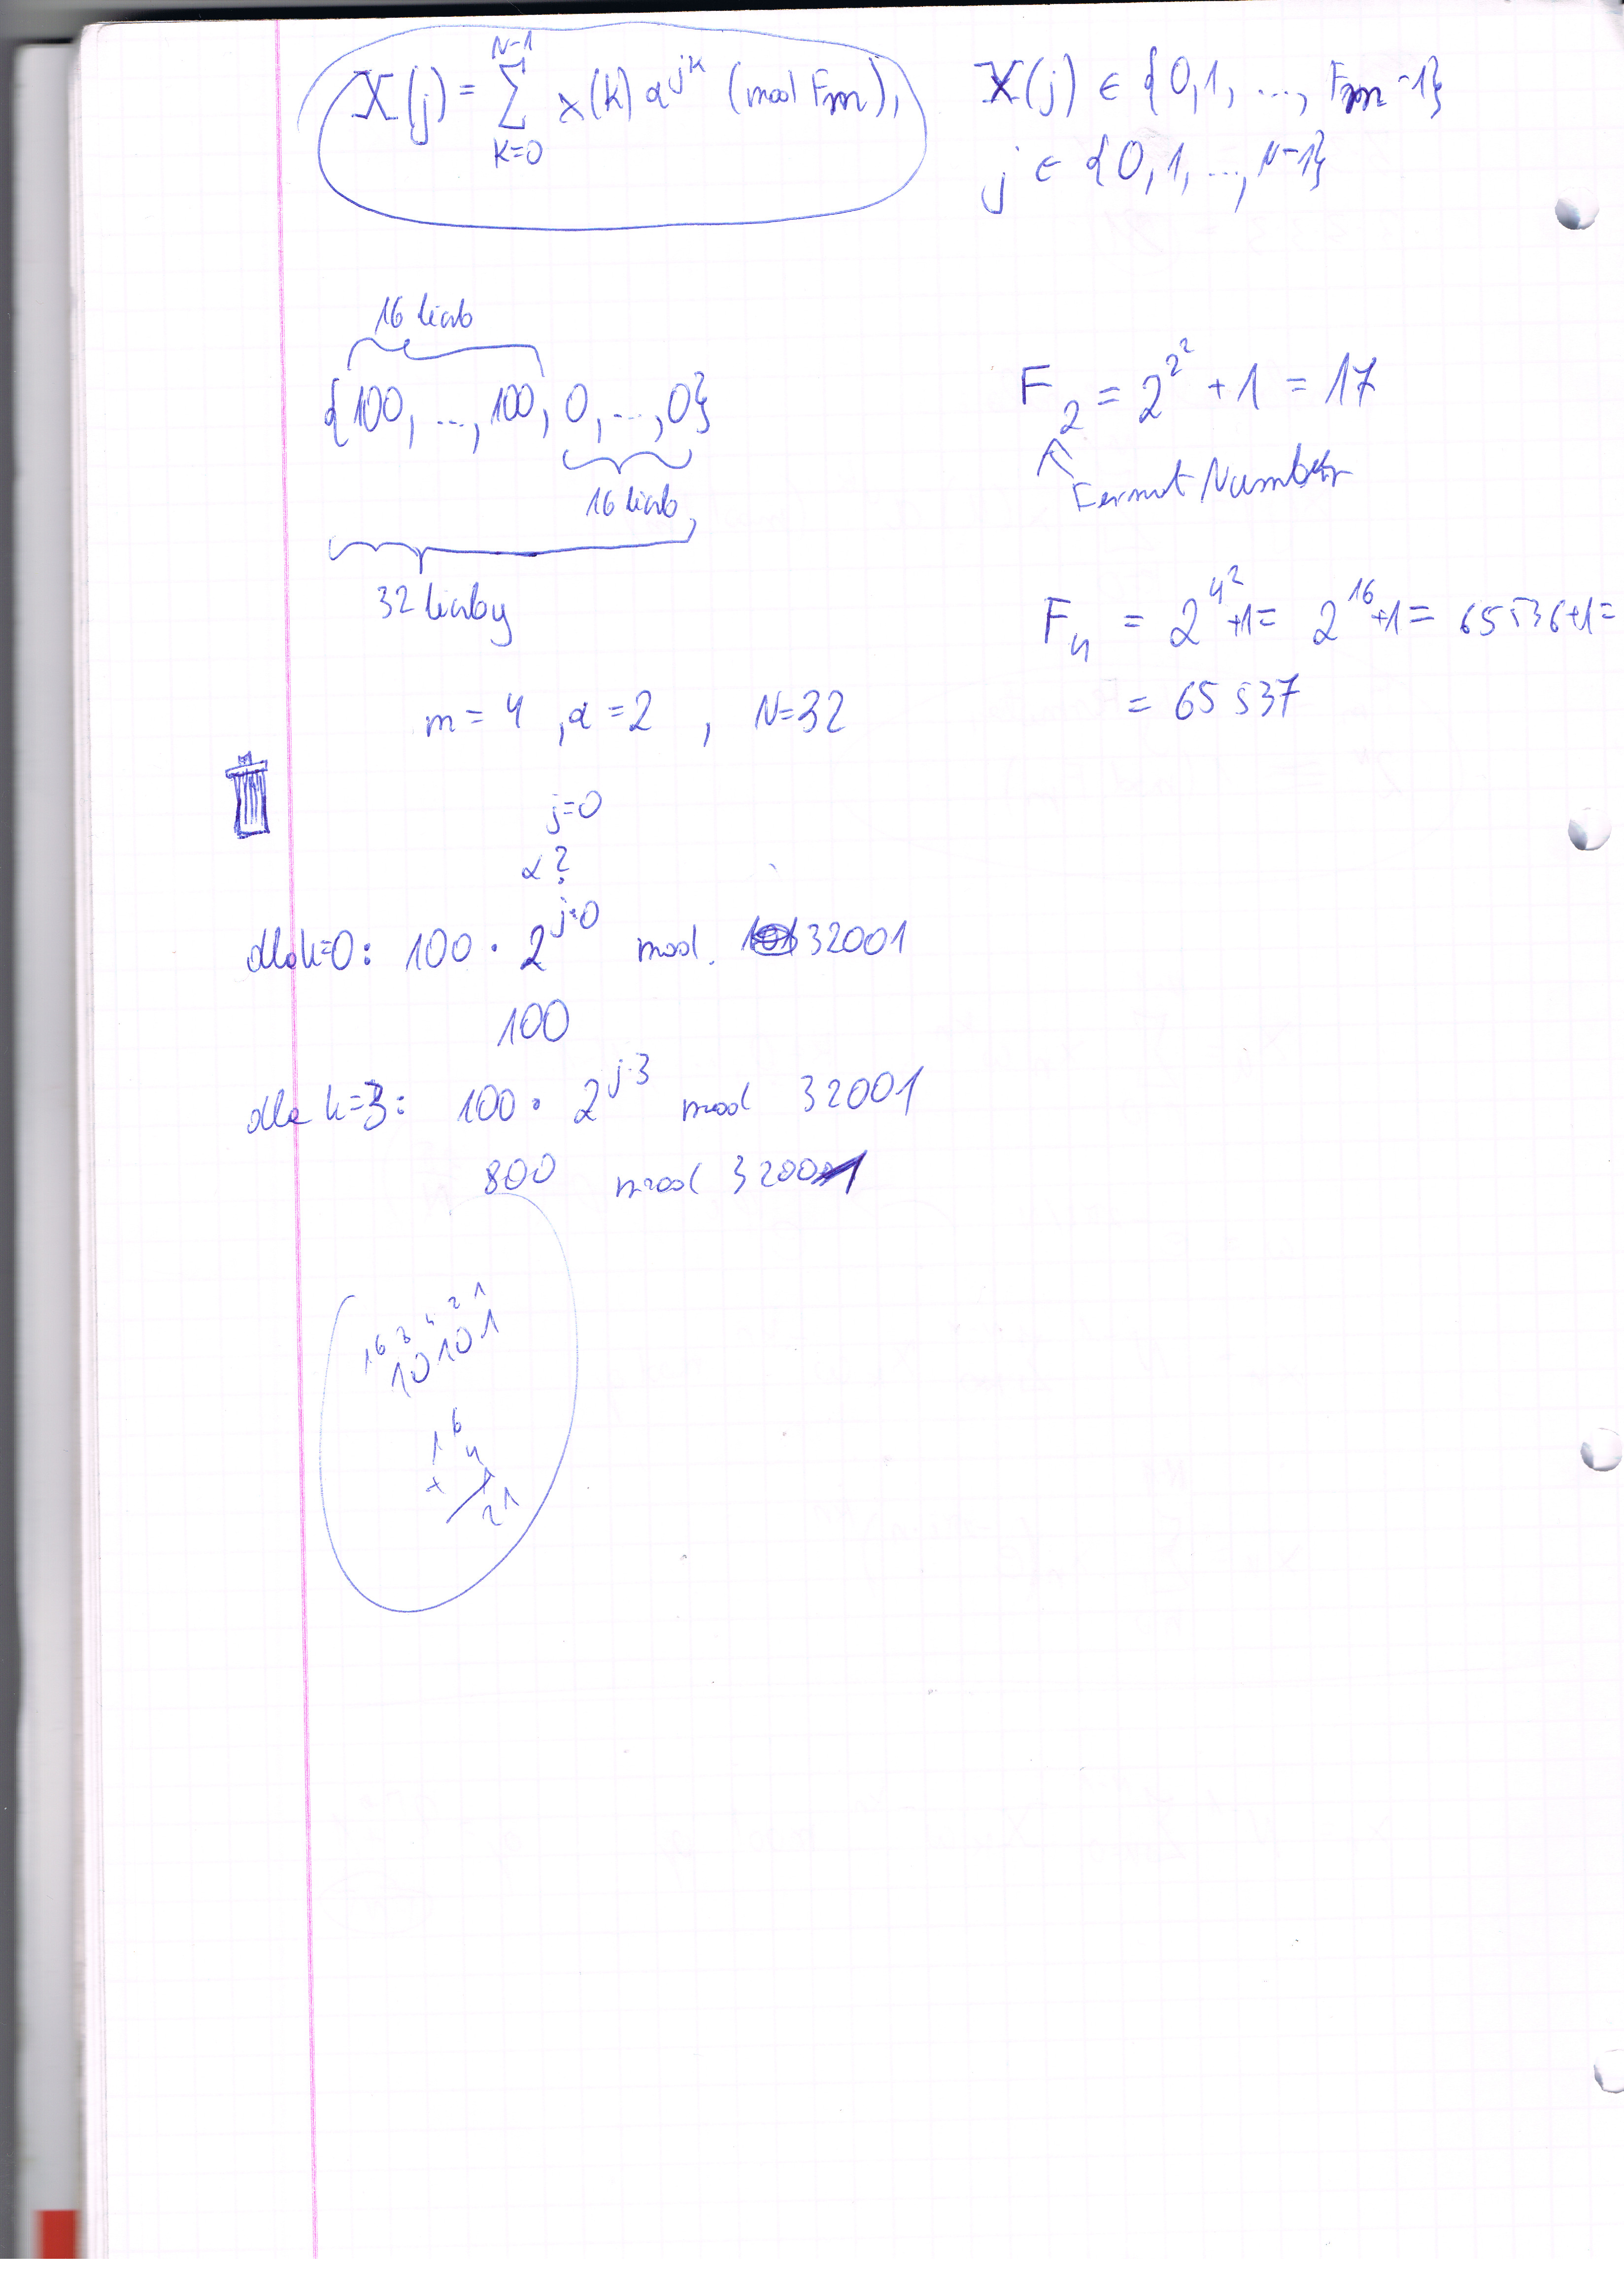 X(j) = Σ_{k=0}^{N-1} x(k) α^{jk} (mod Fm), X(j) ∈ {0,1, ..., Fm-1}
j ∈ {0,1, ..., N-1}
16 liczb
{100, ..., 100, 0, ..., 0}
16 liczb
32 liczby
F_2 = 2^{2^2} + 1 = 17
Fermat Number
F_4 = 2^{4^2} +1 = 2^{16} +1 = 65536+1 =
= 65537
m = 4 , α = 2 , N=32
j=0
α ?
dla k=0: 100 · 2^{j·0} mod. 32001
100
dla k=3: 100 · 2^{j·3} mod 32001
800 mod 32001
16 8 4 2 1
10101
16
4
+ 1
21